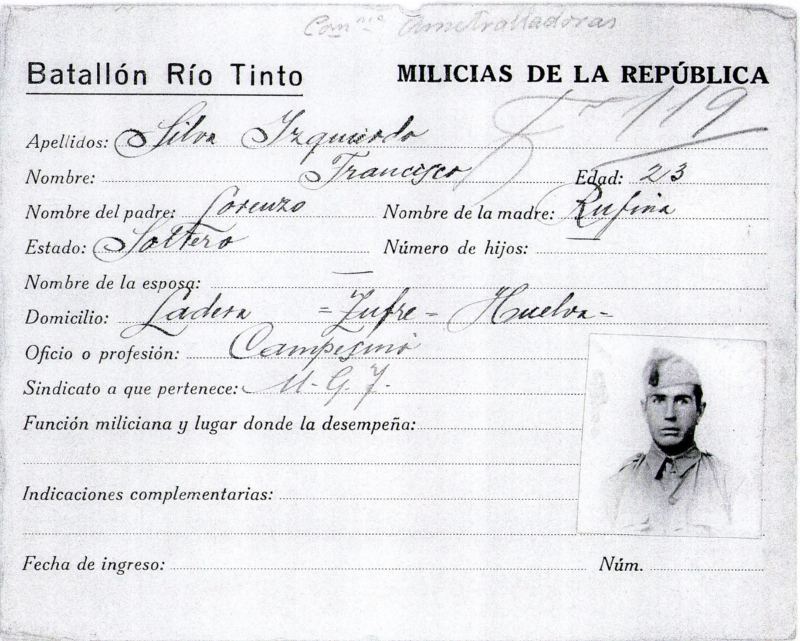 Comñia Ametralladoras
Batallón Río Tinto MILICIAS DE LA REPÚBLICA
119
Apellidos: Silva Izquierdo
Nombre: Francisco Edad: 23
Nombre del padre: Lorenzo Nombre de la madre: Rufina
Estado: Soltero Número de hijos: —
Nombre de la esposa: —
Domicilio: Ladera = Zufre = Huelva =
Oficio o profesión: Campesino
Sindicato a que pertenece: U.G.T.
Función miliciana y lugar donde la desempeña:
Indicaciones complementarias:
Fecha de ingreso: Núm.